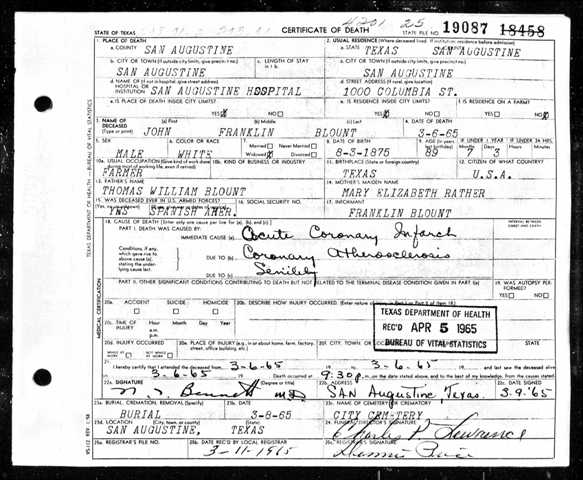 4201 25
STATE OF TEXAS CERTIFICATE OF DEATH STATE FILE NO. 19087 18458
1. PLACE OF DEATH 2. USUAL RESIDENCE (Where deceased lived. If institution: residence before admission)
a. COUNTY SAN AUGUSTINE a. STATE TEXAS SAN AUGUSTINE
b. CITY OR TOWN (If outside city limits, give precinct no.) c. LENGTH OF STAY c. CITY OR TOWN (If outside city limits, give precinct no.)
SAN AUGUSTINE SAN AUGUSTINE
d. NAME OF (If not in hospital, give street address) d. STREET ADDRESS (If rural, give location)
HOSPITAL OR INSTITUTION SAN AUGUSTINE HOSPITAL 1000 COLUMBIA ST.
e. IS PLACE OF DEATH INSIDE CITY LIMITS? e. IS RESIDENCE INSIDE CITY LIMITS? f. IS RESIDENCE ON A FARM?
YES NO YES NO YES NO
3. NAME OF DECEASED (a) First (b) Middle (c) Last 4. DATE OF DEATH
(Type or print) JOHN FRANKLIN BLOUNT 3-6-65
5. SEX 6. COLOR OR RACE 7. Married Never Married 8. DATE OF BIRTH 9. AGE IF UNDER 1 YEAR IF UNDER 24 HRS.
MALE WHITE Widowed Divorced 8-3-1875 89 7 3
10a. USUAL OCCUPATION 10b. KIND OF BUSINESS OR INDUSTRY 11. BIRTHPLACE (State or foreign country) 12. CITIZEN OF WHAT COUNTRY?
FARMER TEXAS U.S.A.
13. FATHER'S NAME 14. MOTHER'S MAIDEN NAME
THOMAS WILLIAM BLOUNT MARY ELIZABETH RATHER
15. WAS DECEASED EVER IN U.S. ARMED FORCES? 16. SOCIAL SECURITY NO. 17. INFORMANT
YNS SPANISH AMER. FRANKLIN BLOUNT
18. CAUSE OF DEATH [Enter only one cause per line for (a), (b), and (c).]
PART I. DEATH WAS CAUSED BY:
IMMEDIATE CAUSE (a) Acute Coronary Infarct
Conditions, if any, which gave rise to above cause (a), stating the underlying cause last.
DUE TO (b) Coronary Atherosclerosis
DUE TO (c) Senility
PART II. OTHER SIGNIFICANT CONDITIONS CONTRIBUTING TO DEATH BUT NOT RELATED TO THE TERMINAL DISEASE CONDITION GIVEN IN PART I(a) 19. WAS AUTOPSY PERFORMED?
YES NO
20a. ACCIDENT SUICIDE HOMICIDE 20b. DESCRIBE HOW INJURY OCCURRED.
TEXAS DEPARTMENT OF HEALTH
REC'D APR 5 1965
BUREAU OF VITAL STATISTICS
20c. TIME OF INJURY Hour Month Day Year
20d. INJURY OCCURRED 20e. PLACE OF INJURY (e.g., in or about home, farm, factory, street, office building, etc.) 20f. CITY, TOWN, OR
21. I hereby certify that I attended the deceased from 3-6-65 to 3-6-65 and last saw the deceased alive
3-6-65 Death occurred at 9:30p m. on the date stated above, and to the best of my knowledge, from the causes stated.
22a. SIGNATURE (Degree or title) 22b. ADDRESS 22c. DATE SIGNED
Bennett MD SAN Augustine Texas. 3.9.'65
23a. BURIAL, CREMATION, REMOVAL (Specify) 23b. DATE 23c. NAME OF CEMETERY OR CREMATORY
BURIAL 3-8-65 CITY CEM-TERY
23d. LOCATION (City, town, or county) (State) 24. FUNERAL DIRECTOR'S SIGNATURE
SAN AUGUSTINE, TEXAS Charles P Lawrence
25a. REGISTRAR'S FILE NO. 25b. DATE REC'D BY LOCAL REGISTRAR 25c. REGISTRAR'S SIGNATURE
3-11-1965
TEXAS DEPARTMENT OF HEALTH — BUREAU OF VITAL STATISTICS
MEDICAL CERTIFICATION